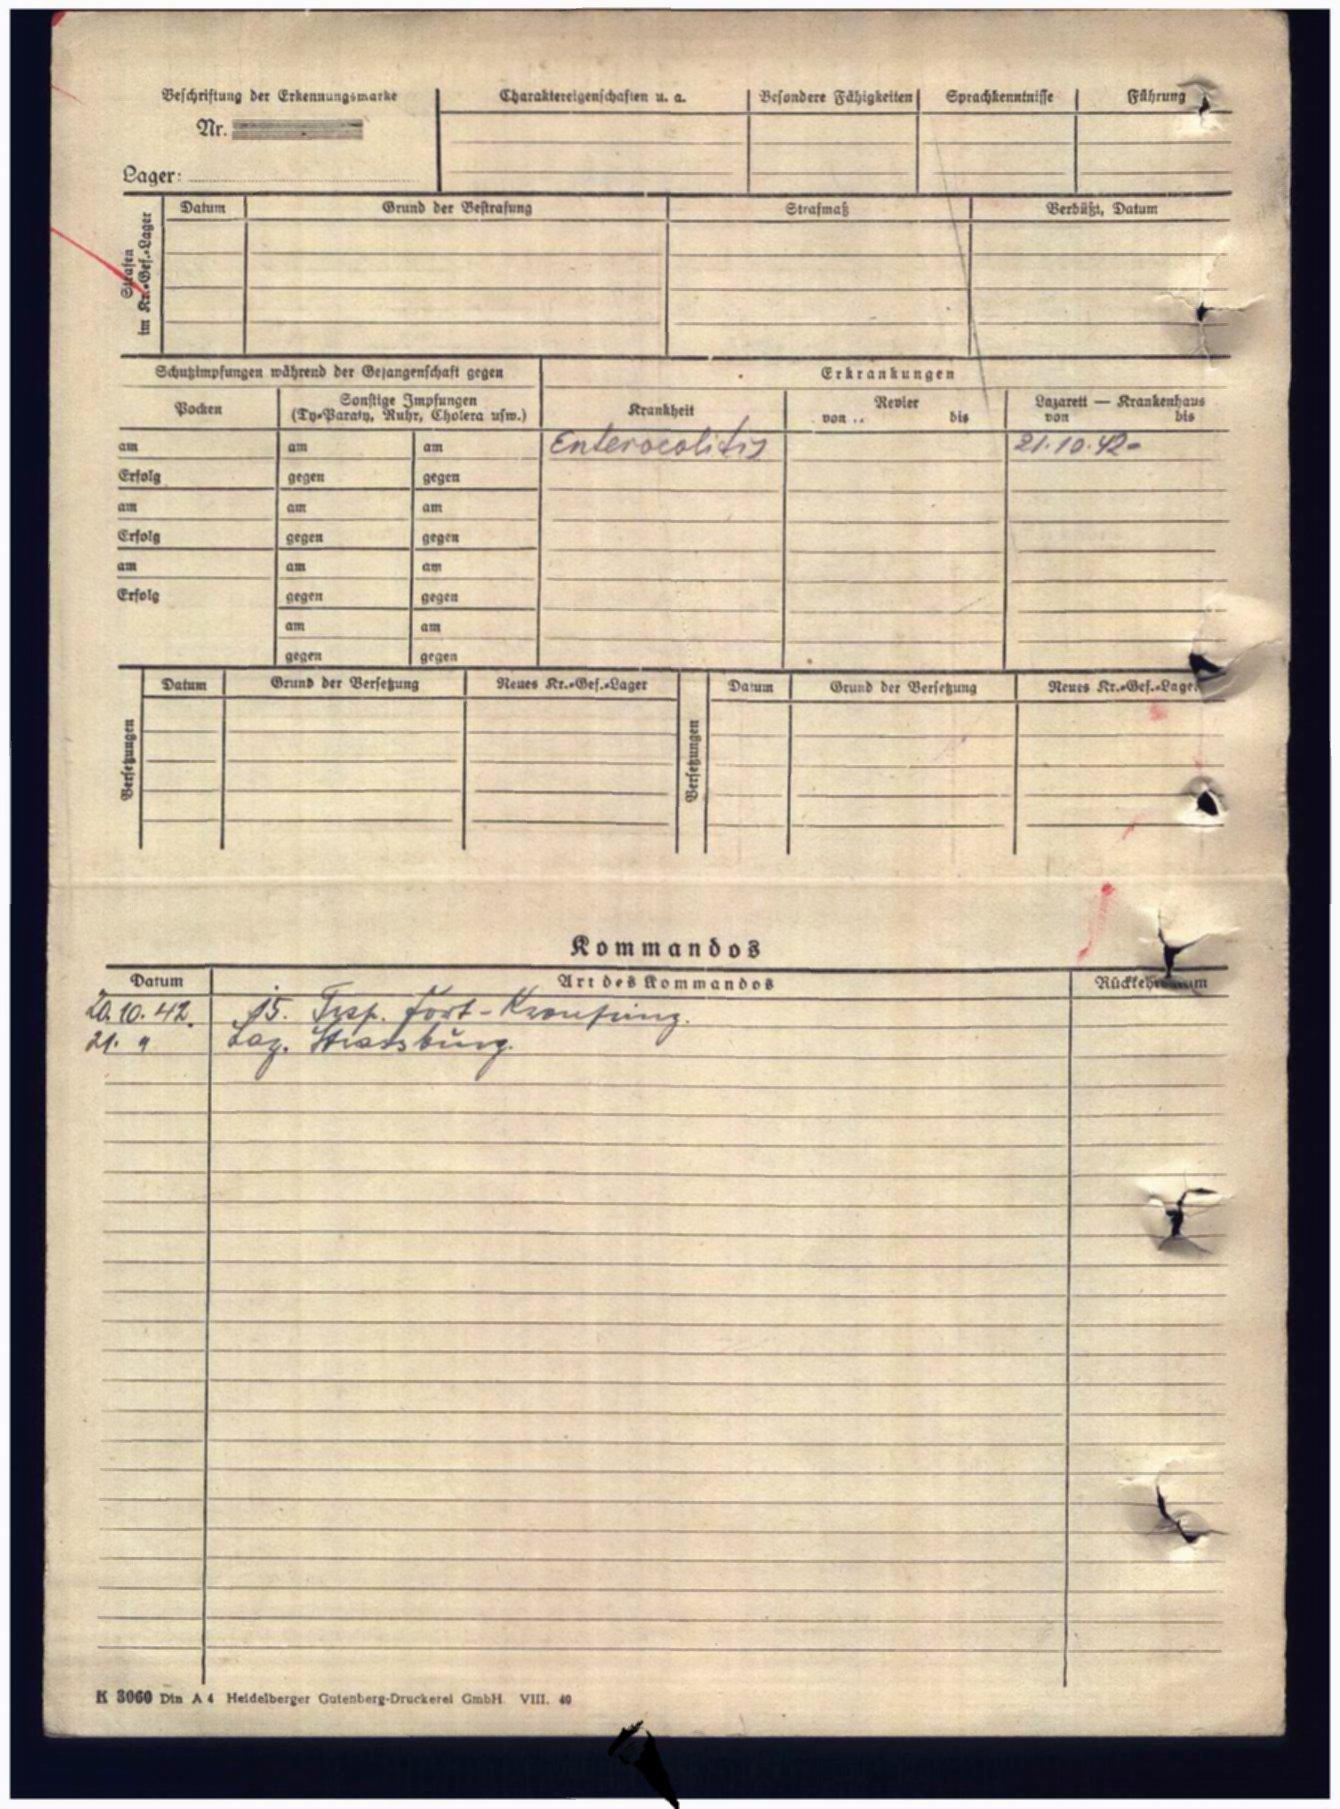 Beschriftung der Erkennungsmarke
Nr.
Lager:
Charaktereigenschaften u. a.
Besondere Fähigkeiten
Sprachkenntnisse
Führung
Strafen
im Kr.-Gef.-Lager
Datum
Grund der Bestrafung
Strafmaß
Verbüßt, Datum
Schutzimpfungen während der Gefangenschaft gegen
Erkrankungen
Pocken
Sonstige Impfungen
(Ty-Paraty, Ruhr, Cholera usw.)
Krankheit
Revier
von .. bis
Lazarett — Krankenhaus
von bis
am am am Enterocolitis 21.10.42-
Erfolg gegen gegen
am am am
Erfolg gegen gegen
am am am
Erfolg gegen gegen
am am
gegen gegen
Versetzungen
Datum Grund der Versetzung Neues Kr.-Gef.-Lager
Versetzungen
Datum Grund der Versetzung Neues Kr.-Gef.-Lager
Kommandos
Datum Art des Kommandos
20.10.42. 15. Trsp. Fort-
21. " Laz. Strassburg.
K 3060 Din A 4 Heidelberger Gutenberg-Druckerei GmbH. VIII. 40